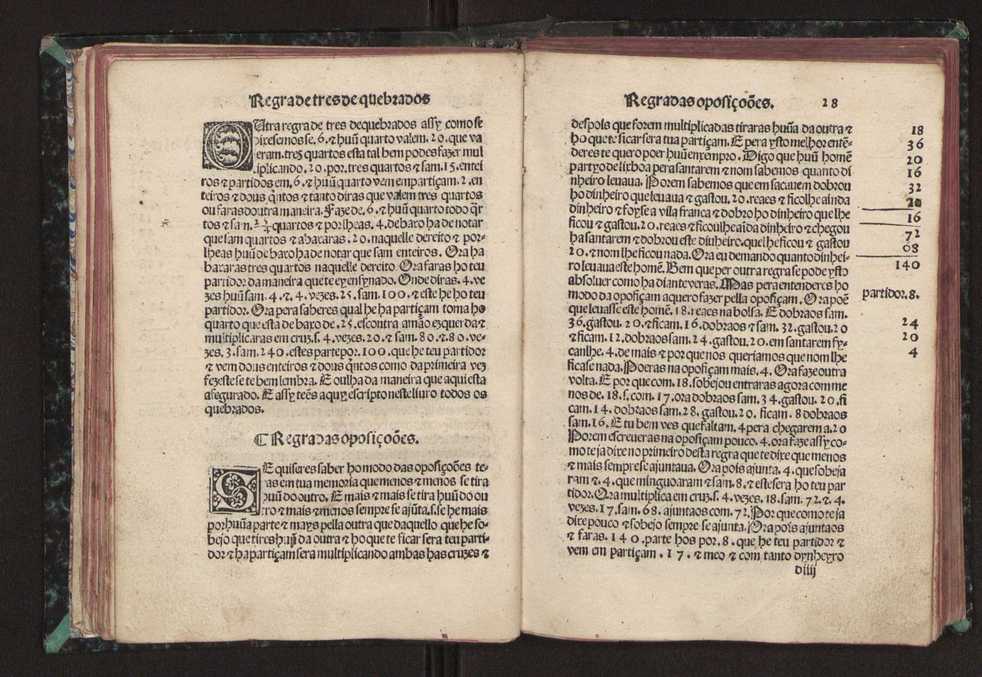 Regra de tres de quebrados
OUtra regra de tres de quebrados assy como se
diresemos se .6. ⁊ huũ quarto valem .20. que va
eram .tres quartos esta tal bem podes fazer mul
tiplicando .20. por .tres quartos ⁊ sam .15. entei
ros ⁊ partidos em .6. ⁊ huũ quarto vem em partiçam .2. en
teiros ⁊ dous q̃ntos ⁊ tanto diras que valem tres quartos
ou faras doutra maneira. Faze de .6. ⁊ huũ quarto todo q̃r
tos ⁊ sam. quartos ⁊ por lheas .4. debaxo ha de notar
que sam quartos ⁊ abaxaras .20. naquelle dereito ⁊ por-
lheas huũ debaxo ha de notar que sam enteiros. Ora ha
baxaras tres quartos naquelle dereito Ora faras ho teu
partidor da maneira que te ey ensynado. Onde diras .4. ve
zes huũ sam .4. ⁊ .4. vezes .25. sam .100. ⁊ este he ho teu
partidor. Ora pera saberes qual he ha partiçam toma ho
quarto que esta debaxo de .25. escontra amão ezquerda ⁊
multiplicaras em cruz .s. 4. vezes .20. ⁊ sam .80. ⁊ .80. ve-
zes .3. sam .240. estes parte por .100. que he teu partidor
⁊ vem dous enteiros ⁊ dous q̃ntos como da primeira vez
fezeste se te bem lembra. E oulha da maneira que aqui esta
afegurado. E assy tẽes aquy escripto neste liuro todos os
quebrados.
☾ Regra das oposiçoões.
SE quiseres saber ho modo das oposiçoões te-
ras em tua memoria que menos ⁊ menos se tira
huũ do outro. E mais ⁊ mais se tira huũ do ou
tro ⁊ mais ⁊ menos sempre se ajũta .s. se he mais
por huũa parte ⁊ mays pella outra que daquello que he so-
bejo que tires huũ da outra ⁊ ho que te ficar sera teu parti-
dor ⁊ ha partiçam sera multiplicando ambas has cruzes ⁊
Regra das oposiçoões. 28
despois que forem multiplicadas tiraras huũa da outra ⁊
ho que te ficar sera tua partiçam. E pera ysto melhor entẽ-
deres te quero poer huũ enxempro. Digo que huũ homẽ
partyo de lixboa pera santarem ⁊ nom sabemos quanto di
nheiro leuaua. Porem sabemos que em sacauem dobrou
ho dinheiro que leuaua ⁊ gastou .20. reaes ⁊ ficolhe ainda
dinheiro ⁊ foyse a villa franca ⁊ dobro ho dinheiro que lhe
ficou ⁊ gastou .20. reaes ⁊ ficoulhe aĩda dinheiro ⁊ chegou
ha santarem ⁊ dobrou este dinheiro que lhe ficou ⁊ gastou
20. ⁊ nom lhe ficou nada. Ora eu demando quanto dinhei-
ro leuaua este homẽ. Bem que per outra regra se pode ysto
absoluer como ha diante veras. Mas pera entenderes ho
modo da oposiçam a quero fazer pella oposiçam. Ora poẽ
que leuasse este homẽ .18. reaes na bolsa. E dobraos sam.
36. gastou .20. ⁊ ficam .16. dobraos ⁊ sam .32. gastou .20
⁊ ficam .12. dobraos sam .24. gastou .20. em santarem fy-
canlhe .4. de mais ⁊ por que nos queriamos que nom lhe
ficase nada. Poeras na oposiçam mais .4. Ora faze outra
volta. E por que com .18. sobejou entraras agora com me
nos de .18. s. com .17. ora dobraos sam .34. gastou .20. fi
cam .14. dobraos sam .28. gastou .20. ficam .8 dobraos
sam .16. E tu bem ves que faltam .4 pera chegarem a .20
Porem escreueras na oposiçam pouco .4. ora faze assy co-
mo te ja dixe no primeiro desta regra que te dixe que menos
⁊ mais sempre se ajuntaua. Ora pois ajunta .4. que sobeja
ram ⁊ .4. que minguoaram ⁊ sam .8. ⁊ este sera ho teu par
tidor. Ora multiplica em cruz .s. 4. vezes .18. sam .72. ⁊ .4.
vezes .17. sam .68. ajuntaos com .72. Por que como te ja
dixe pouco ⁊ sobejo sempre se ajunta. Ora pois ajuntaos
⁊ faras .140. parte hos por .8. que he teu partidor ⁊
vem em partiçam .17. ⁊ meo ⁊ com tanto dynheyro
diiij
18
36
20
16
32
20
16
72
68
140
partidor .8.
24
20
4